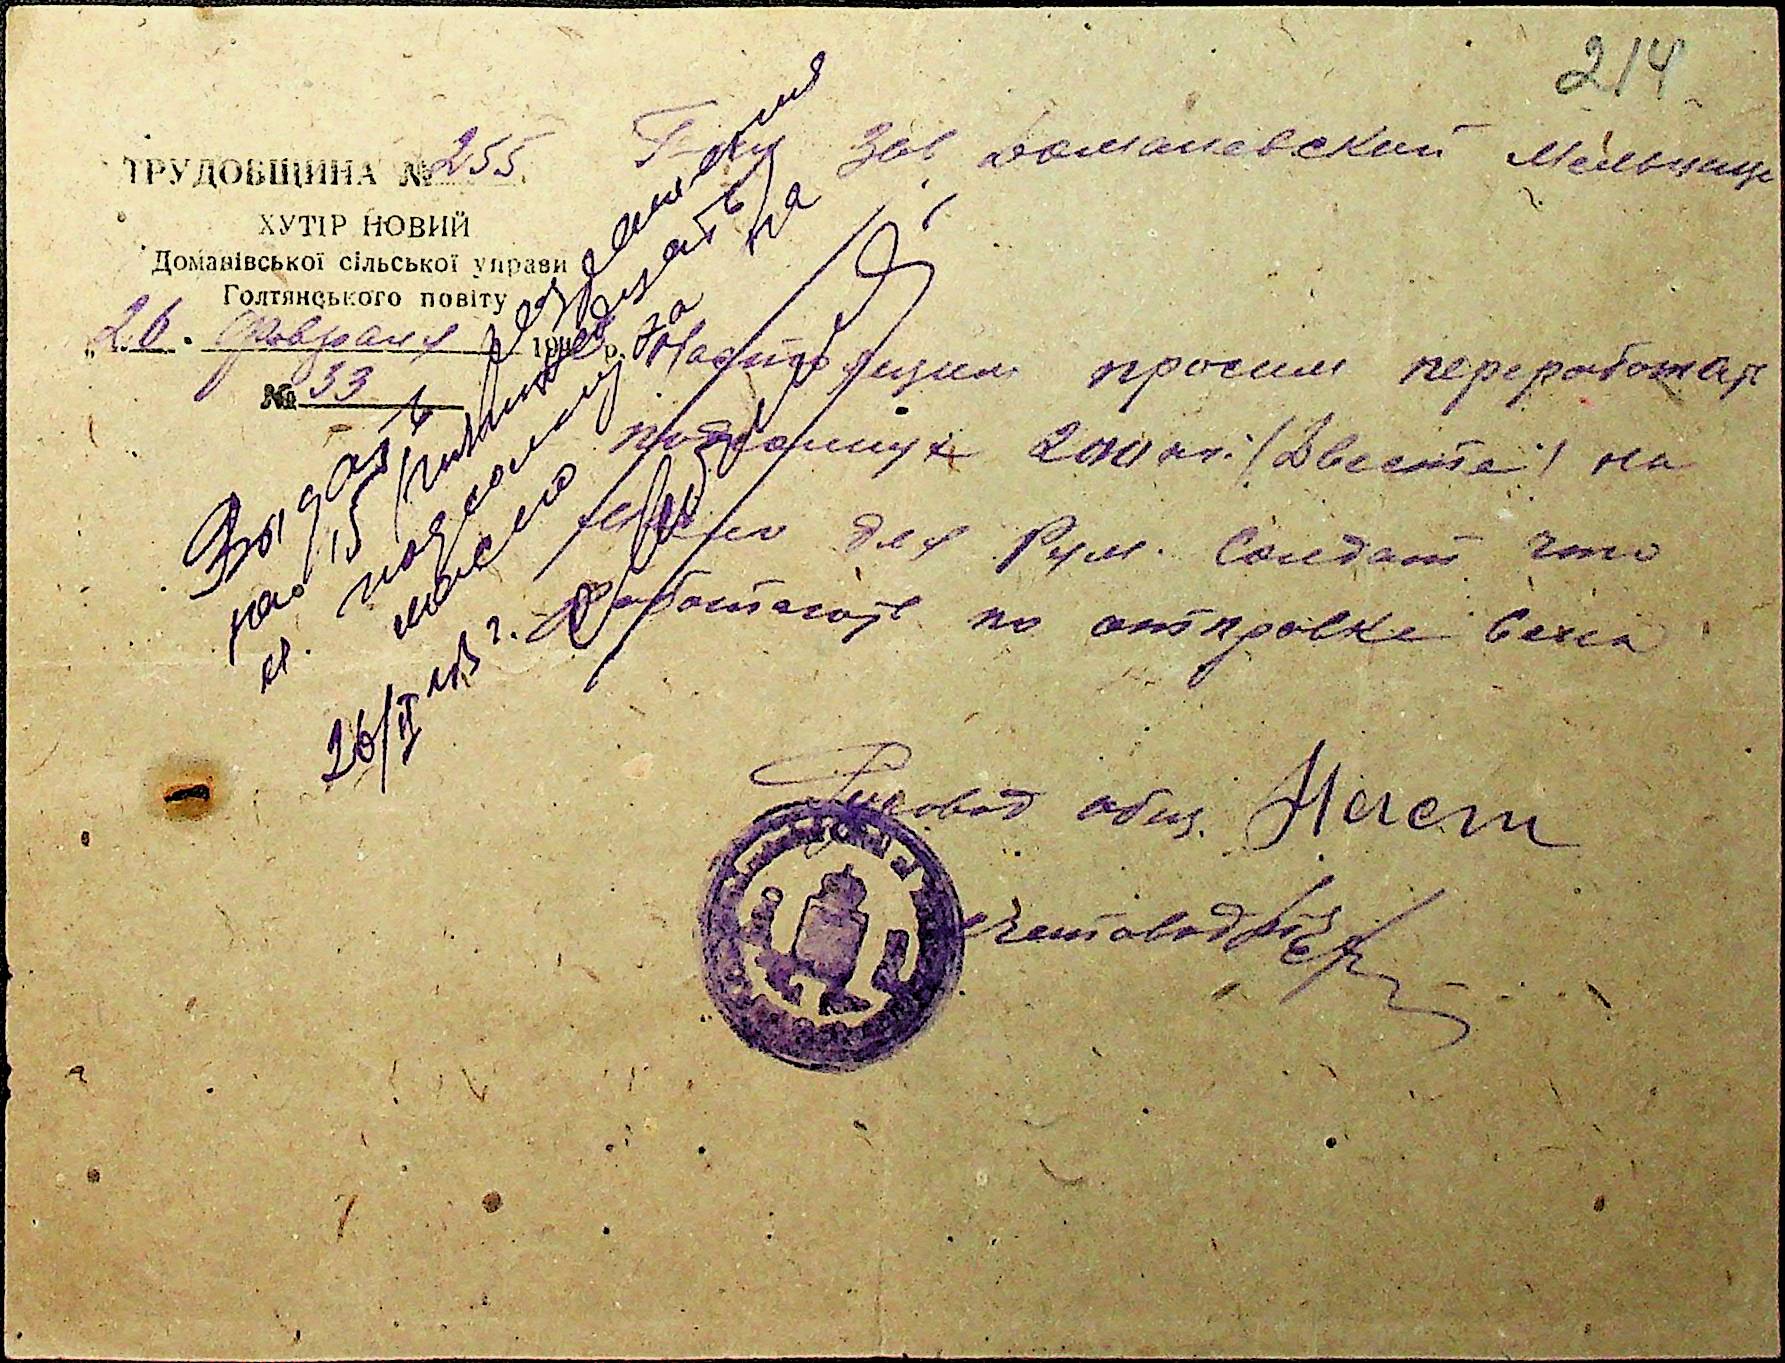 214
ТРУДОБЩИНА № 255
ХУТІР НОВИЙ
Доманівської сільської управи
Голтянського повіту
„26. февраля 194 р.
№ 33
Зав Доманевской Мельници
Настоящим просим переработать
подсолнух 200 кг. (Двести) на
масло для Рум. Солдат что
работают по отправке сена
Руковод общ.
Счетовод
Выдать разрешения
на 15 (пятнадцать)
кг. подсолнуха на
масло
26/II 43 г.